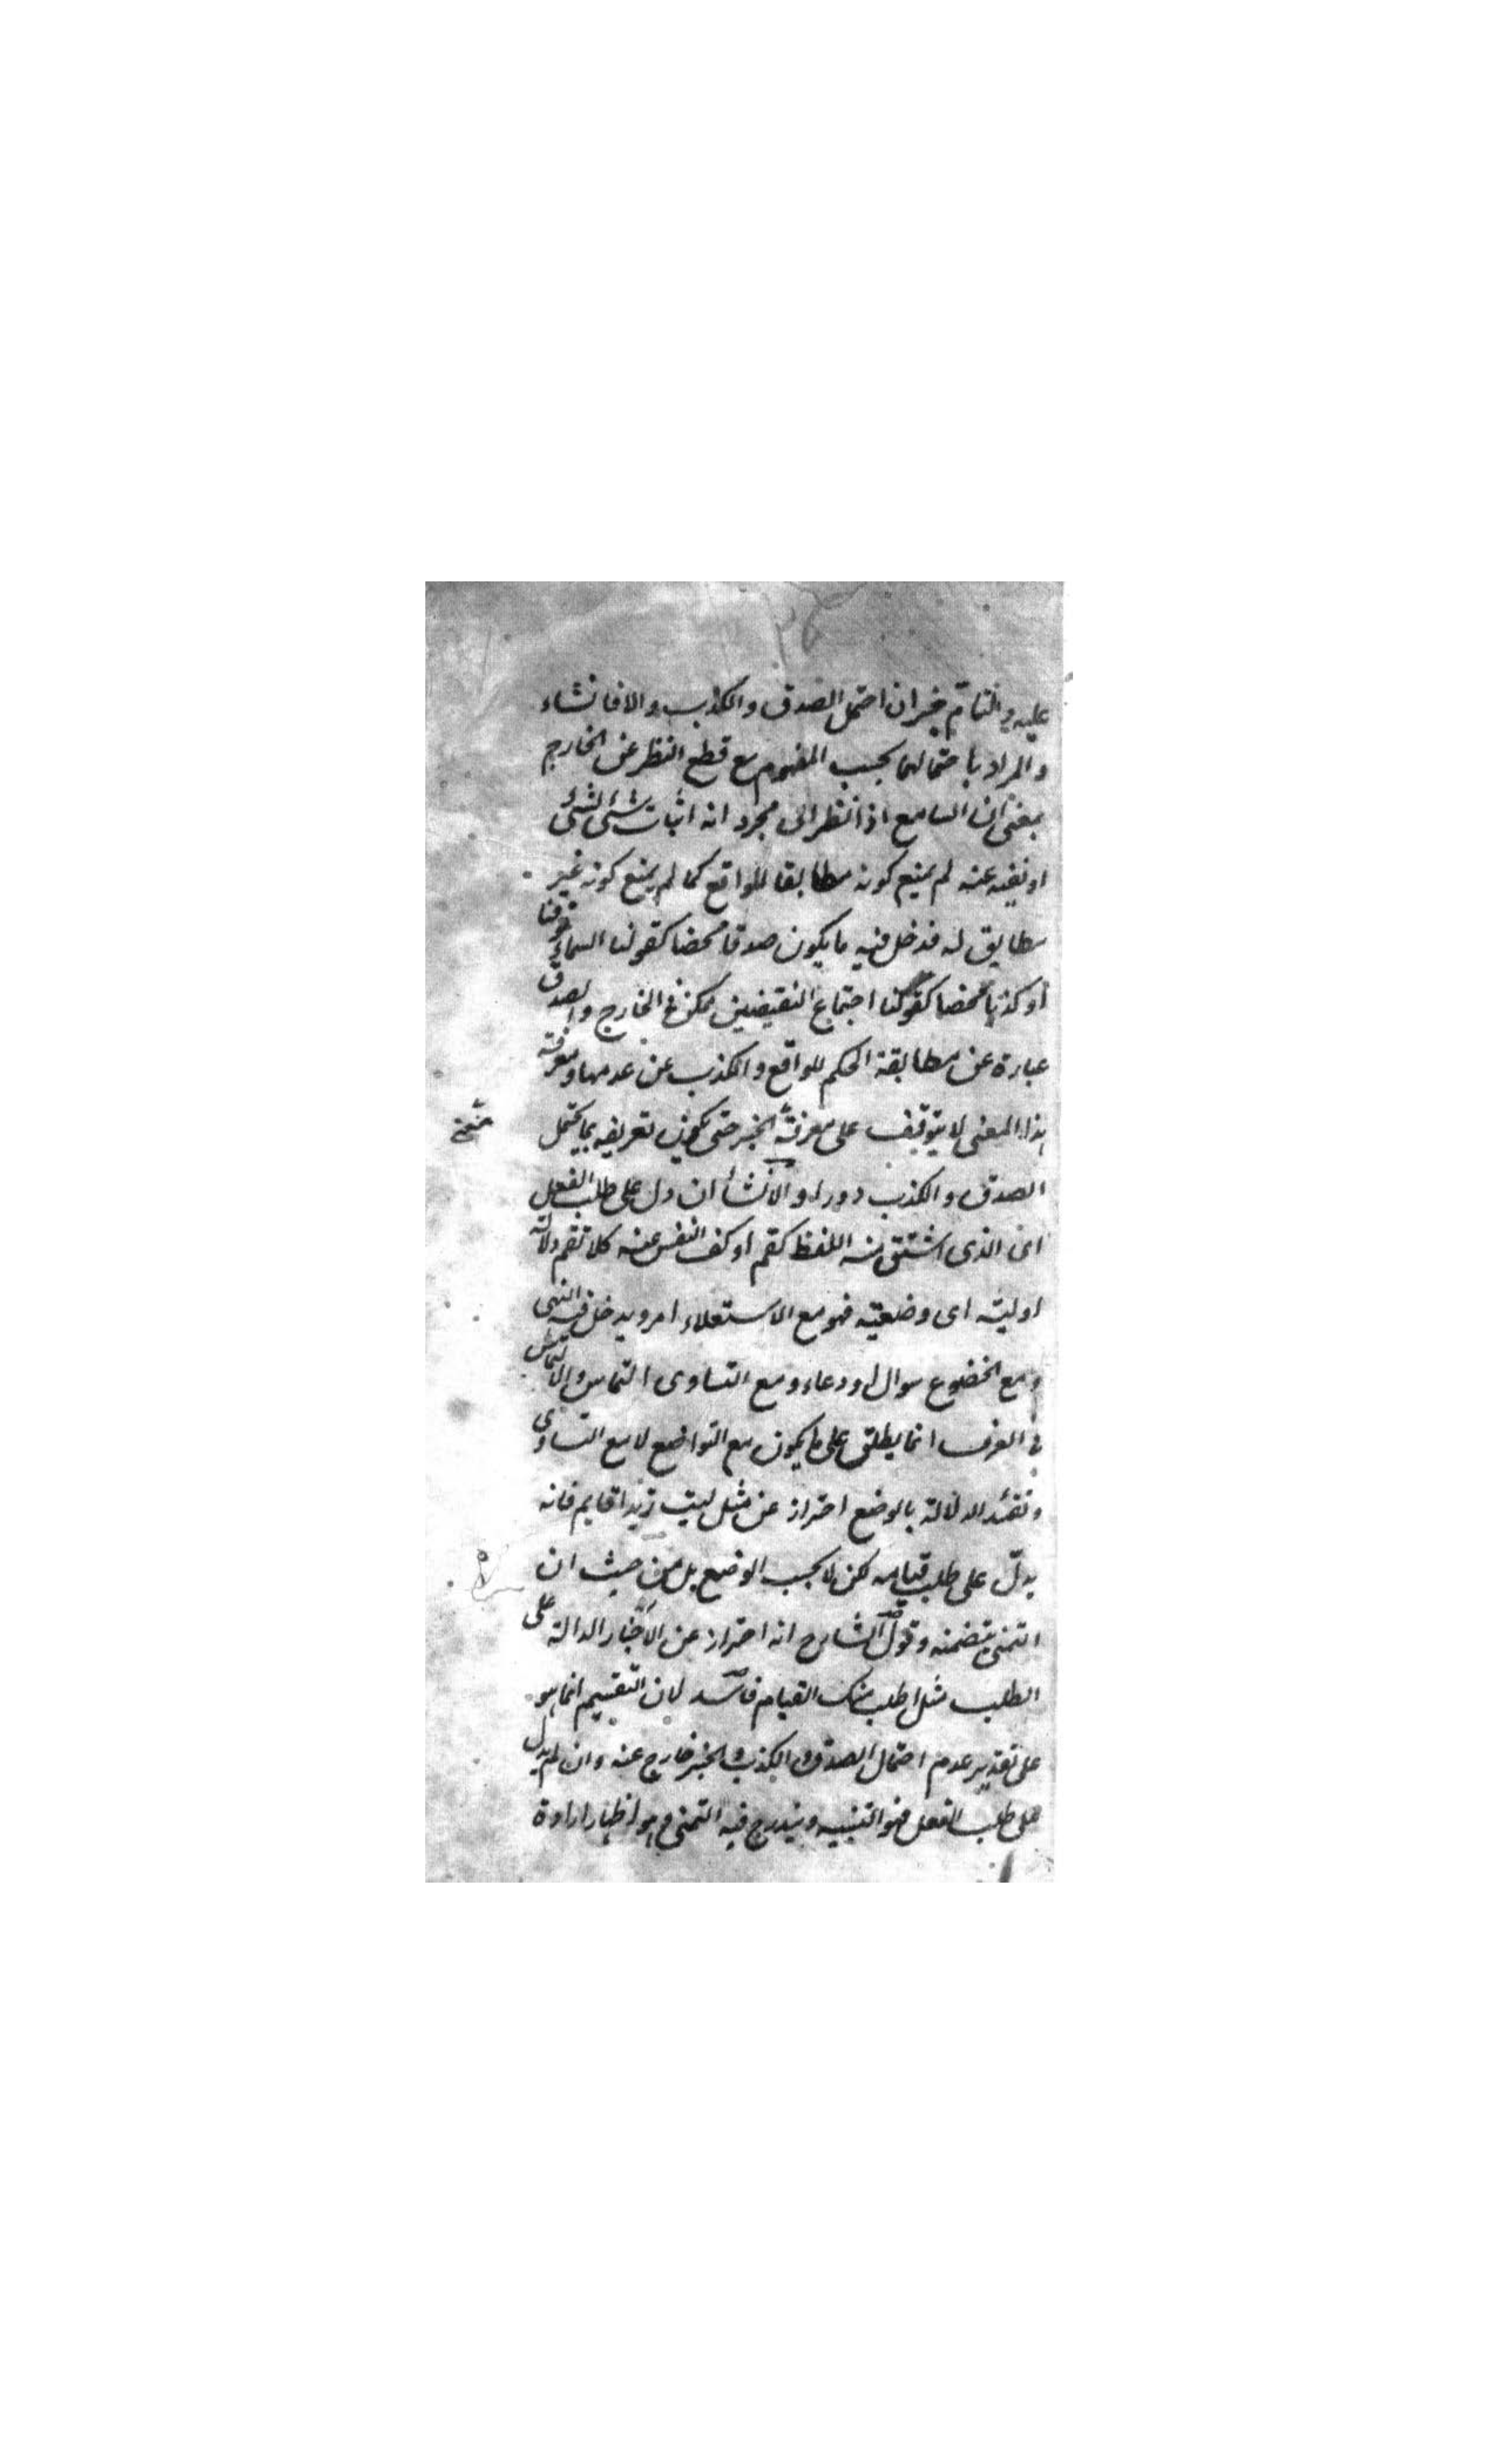 عليه والتام خبر ان احتمل الصدق والكذب والا فانشاء
والمراد باحتمالهما بحسب المفهوم مع قطع النظر عن الخارج
بمعنى ان السامع اذا نظر الى مجرد انه اثبات شئ لشئ
او نفيه عنه لم يمنع كونه مطابقا للواقع كما لم يمنع كونه غير
مطابق له فدخل فيه ما يكون صدقا محضا كقولنا السماء فوقنا
او كذبا محضا كقولنا اجتماع النقيضين ممكن في الخارج والصدق
عبارة عن مطابقة الحكم للواقع والكذب عن عدمها ومعرفة
هذا المعنى لا يتوقف على معرفة الخبر حتى يكون تعريفه بما يحتمل
الصدق والكذب دورا والانشاء ان دل على طلب الفعل
اى الذى اشتق منه اللفظ كقم او كف النفس عنه كلا تقم دلالة
اولية اى وضعية فهو مع الاستعلاء امر ويدخل فيه النهى
ومع الخضوع سوال او دعاء ومع التساوى التماس والالتماس
فى العرف انما يطلق على ما يكون مع التواضع لا مع التساوى
وتقييد الدلالة بالوضع احتراز عن مثل ليت زيدا قايم فانه
يدلّ على طلب قيامه لكن لا بحسب الوضع بل من حيث ان
التمنى يتضمنه وقول الشارح انه احتراز عن الاخبار الدالة على
الطلب مثل اطلب منك القيام فاسد لان التقسيم انما هو
على تقدير عدم احتمال الصدق والكذب والخبر خارج عنه وان لم يدل
على طلب الفعل فهو التنبيه ويندرج فيه التمنى وهو اظهار ارادة